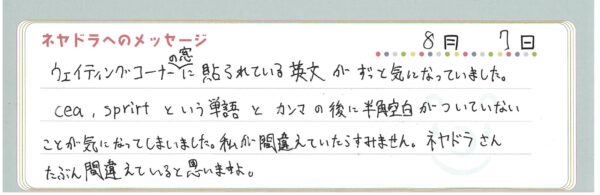 ネヤドラへのメッセージ
8月 7日
ウェイティングコーナーの窓に貼られている英文がずっと気になっていました。
cea, sprirt という単語とカンマの後に半角空白がついていない
ことが気になってしまいました。私が間違えていたらすみません。ネヤドラさん
たぶん間違えていると思いますよ。